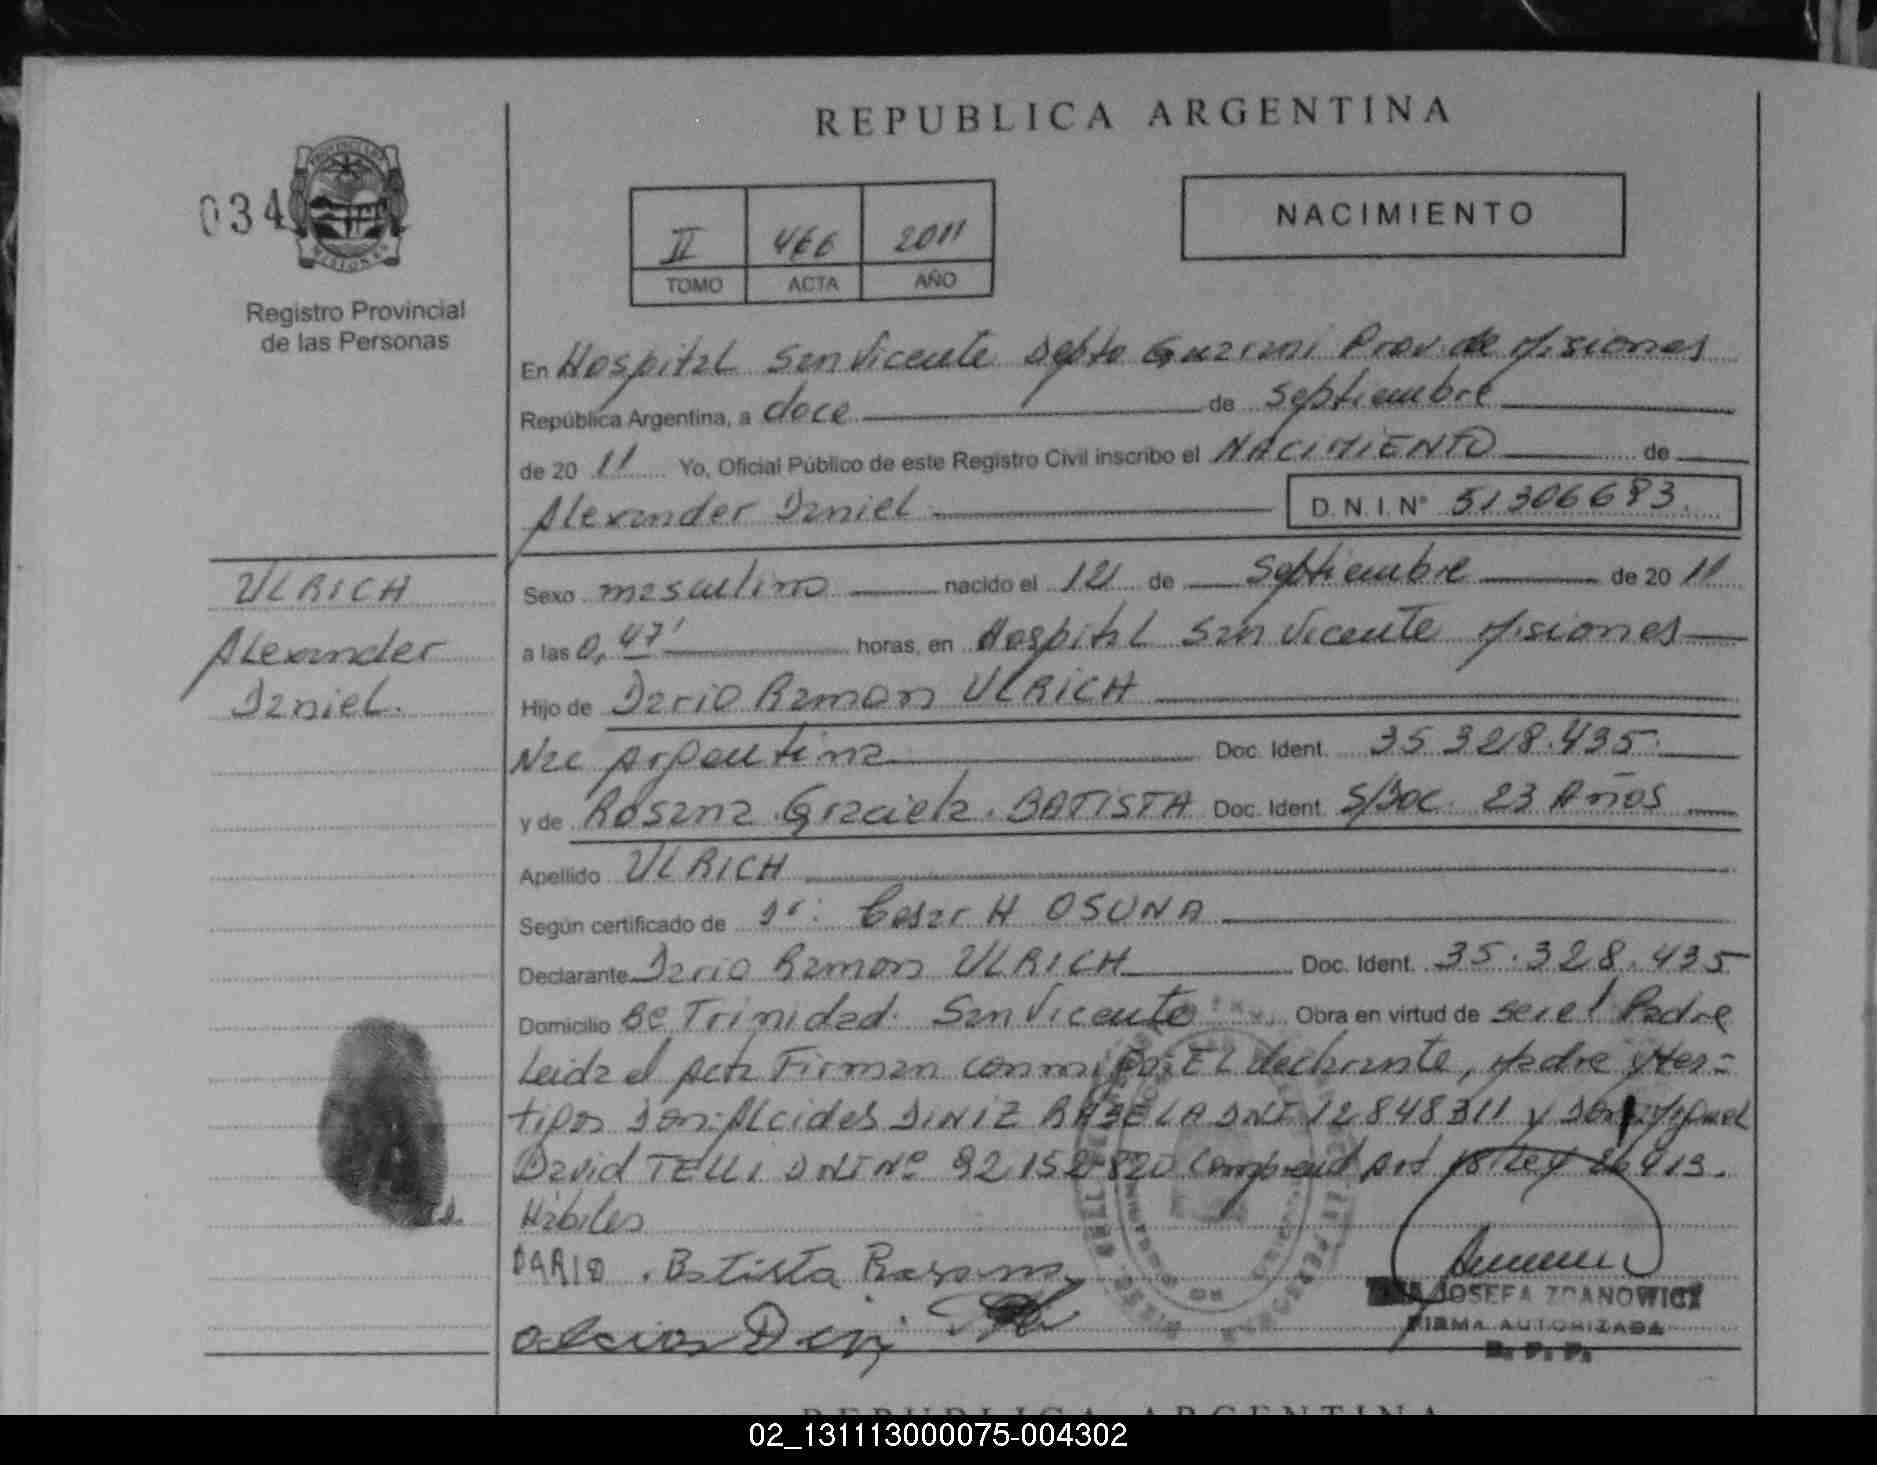 REPUBLICA ARGENTINA
034
NACIMIENTO
II 466 2011
TOMO ACTA AÑO
Registro Provincial
de las Personas
En Hospital San Vicente Depto Guarani Prov. de Misiones
República Argentina, a doce de Septiembre
de 20 11 Yo, Oficial Público de este Registro Civil inscribo el NACIMIENTO de
Alexander Daniel D.N.I. N° 51306693.
ULRICH
Alexander
Daniel.
Sexo masculino nacido el 12 de Septiembre de 20 11
a las 0,47' horas, en Hospital San Vicente Misiones
Hijo de Dario Ramon ULRICH
Nac Argentina Doc. Ident. 35 328.435.
y de Rosana Graciela. BATISTA Doc. Ident. S/Doc. 23 Años
Apellido ULRICH
Según certificado de Dr: Cesar H OSUNA
Declarante Dario Ramon ULRICH Doc. Ident. 35.328.435
Domicilio Bº Trinidad. San Vicente Obra en virtud de ser el Padre
Leida el Acta Firman conmigo: EL declarante, Madre y tes=
tigos Don: Alcides DINIZ DNI 12848311 y Don Miguel
David TELLI DNI Nº 92152820 Art Ley 26413.
Habiles
DARIO. Batista Rosana
JOSEFA ZDANOWICZ
FIRMA AUTORIZADA
R. P. P.
REPUBLICA ARGENTINA
02_131113000075-004302